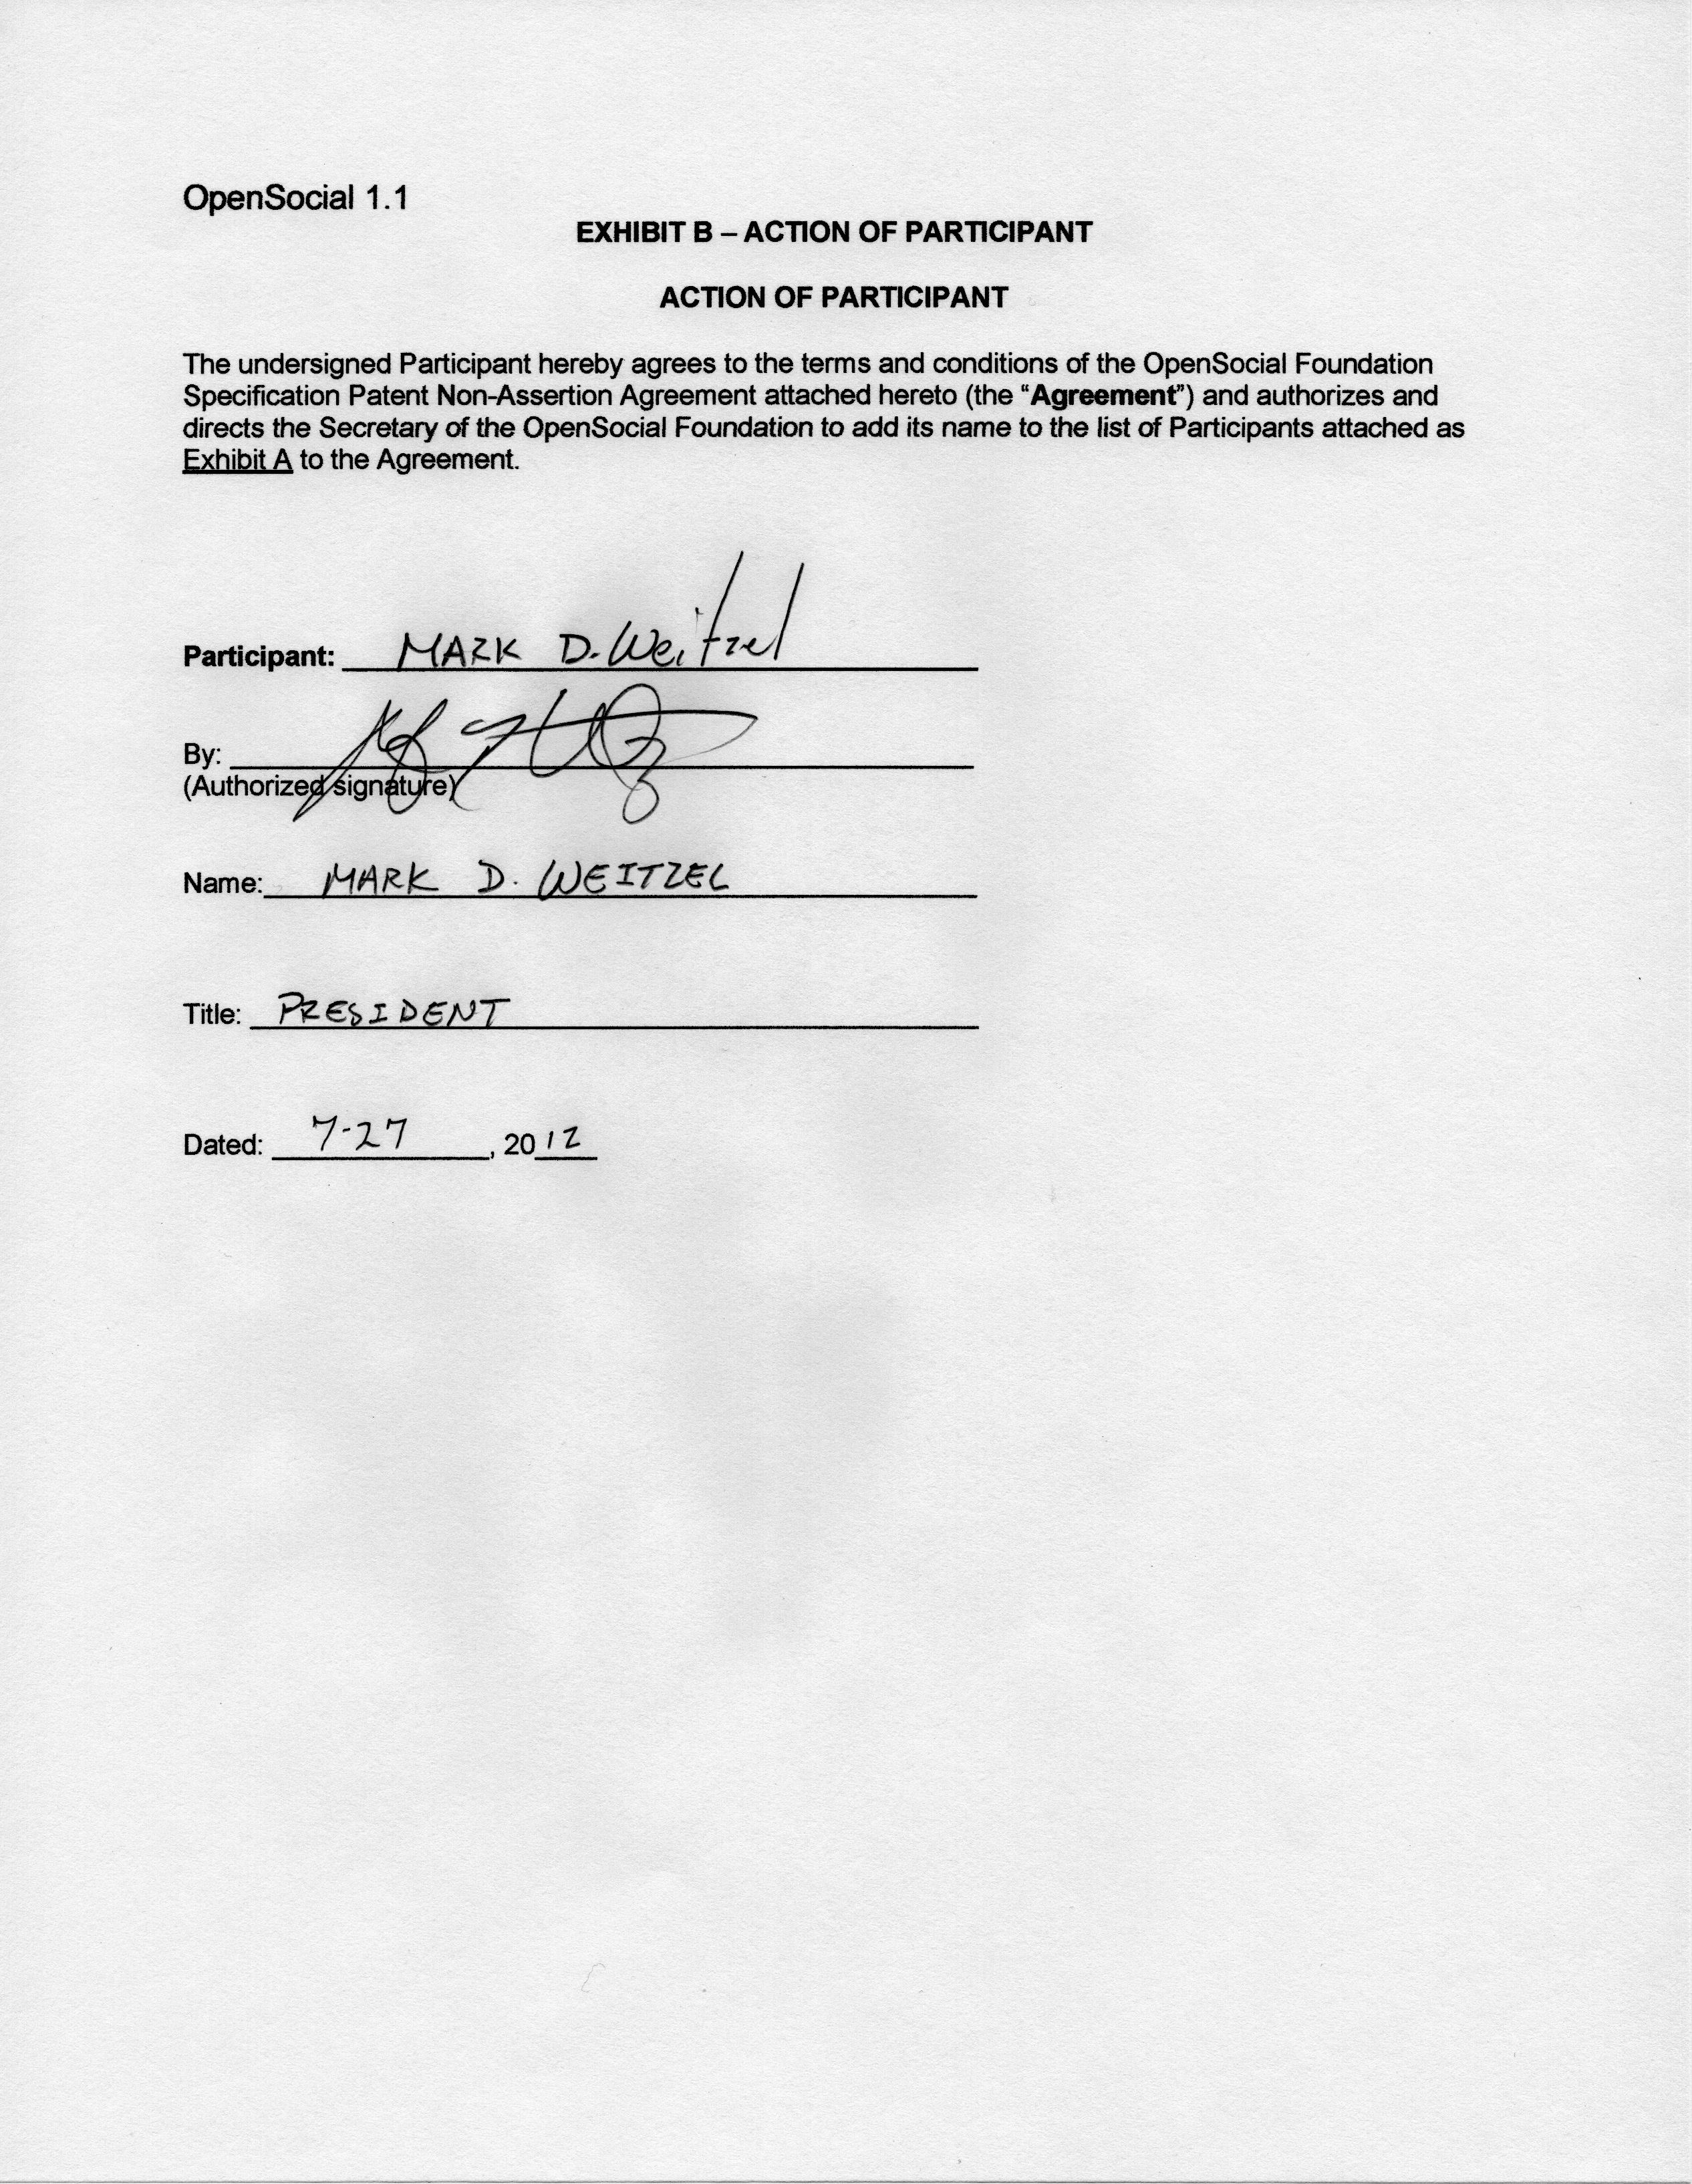 OpenSocial 1.1
EXHIBIT B – ACTION OF PARTICIPANT
ACTION OF PARTICIPANT
The undersigned Participant hereby agrees to the terms and conditions of the OpenSocial Foundation
Specification Patent Non-Assertion Agreement attached hereto (the “Agreement”) and authorizes and
directs the Secretary of the OpenSocial Foundation to add its name to the list of Participants attached as
Exhibit A to the Agreement.
Participant: MARK D. Weitzel
By:
(Authorized signature)
Name: MARK D. WEITZEL
Title: PRESIDENT
Dated: 7-27, 2012